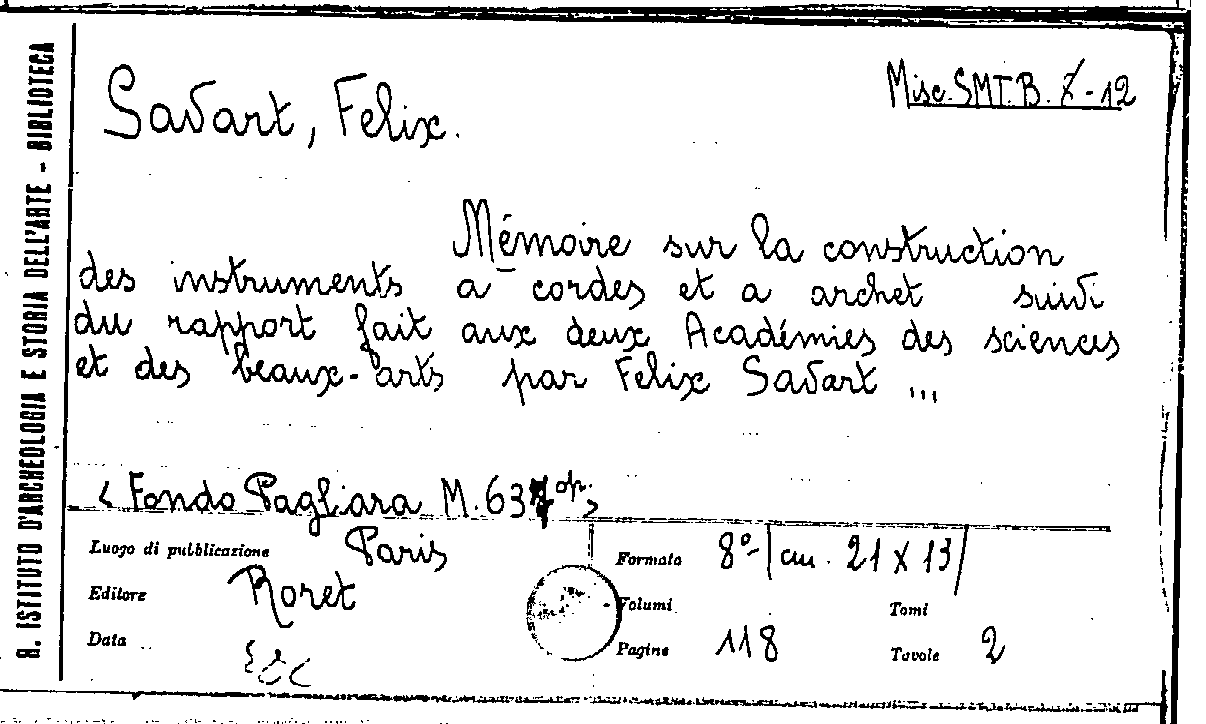 R. ISTITUTO D'ARCHEOLOGIA E STORIA DELL'ARTE - BIBLIOTECA
Savart, Felix.
Misc. SMT. B. Z-12
Mémoire sur la construction
des instruments a cordes et a archet suivi
du rapport fait aux deux Académies des sciences
et des beaux-arts par Felix Savart ...
< Fondo Pagliara M. 63 op. >
Luogo di pubblicazione Paris
Formato 8°- / cm. 21 x 13 /
Editore Roret
Volumi
Tomi
Data
Pagine 118
Tavole 2